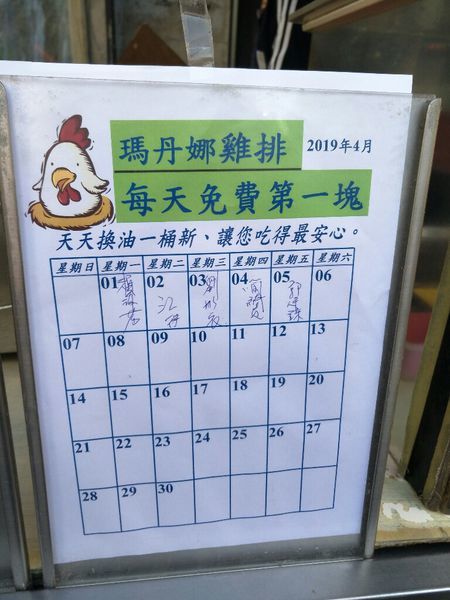 瑪丹娜雞排 2019年4月
每天免費第一塊
天天換油一桶新、讓您吃得最安心。
星期日 星期一 星期二 星期三 星期四 星期五 星期六
01 02 03 04 05 06
07 08 09 10 11 12 13
14 15 16 17 18 19 20
21 22 23 24 25 26 27
28 29 30